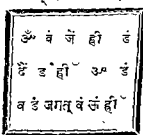 ॐ वं जें ह्रीं डं
दैं डं ह्रीँ ॐ डं
व डं जगत् वं ऊं ह्रीँ